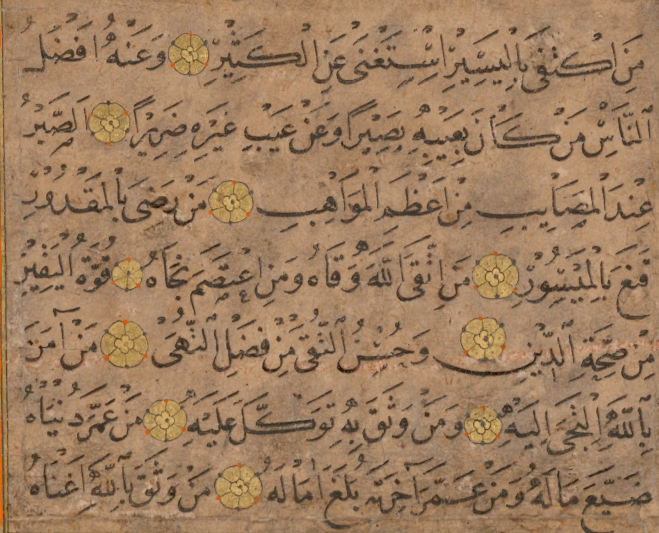 مَنِ اكْتَفَى بِالْيَسِيرِ اسْتَغْنَى عَنِ الْكَثِيرِ وَعَنْهُ أَفْضَلُ
النَّاسِ مَنْ كَانَ بِعَيْبِهِ بَصِيرًا وَعَنْ عَيْبِ غَيْرِهِ ضَرِيرًا الصَّبْرُ
عِنْدَ الْمَصَايِبِ مِنْ أَعْظَمِ الْمَوَاهِبِ مَنْ رَضِيَ بِالْمَقْدُورِ
قَنِعَ بِالْمَيْسُورِ مَنِ اتَّقَى اللَّهَ وَقَاهُ وَمَنِ اعْتَصَمَ نَجَاهُ قُوَّةُ الْيَقِينِ
مِنْ صِحَّةِ الدِّينِ وَحُسْنُ التُّقَى مِنْ فَضْلِ النُّهَى مَنْ آمَنَ
بِاللَّهِ الْتَجَى إِلَيْهِ وَمَنْ وَثِقَ بِهِ تَوَكَّلَ عَلَيْهِ مَنْ عَمَّرَ دُنْيَاهُ
ضَيَّعَ مَالَهُ وَمَنْ عَمَّرَ آخِرَتَهُ بَلَغَ آمَالَهُ مَنْ وَثِقَ بِاللَّهِ أَغْنَاهُ